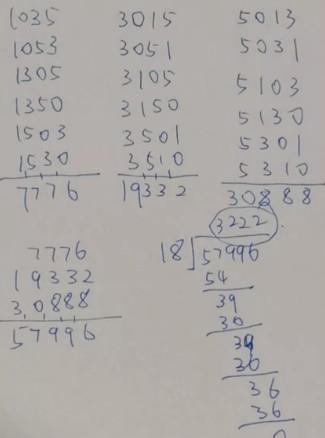 1035 3015 5013
1053 3051 5031
1305 3105 5103
1350 3150 5130
1503 3501 5301
1530 3510 5310
7776 19332 30888
7776
19332
30888
57996
3222
18 57996
54
39
30
39
30
36
36
0